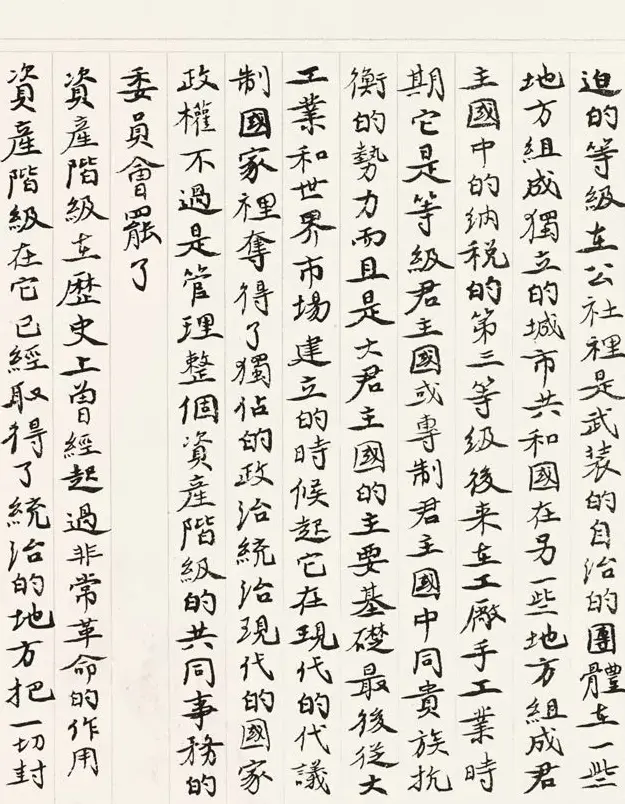 迫的等級在公社裡是武装的自治的團體在一些
地方組成獨立的城市共和國在另一些地方組成君
主國中的纳税的第三等級後来在工廠手工業時
期它是等級君主國或專制君主國中同貴族抗
衡的勢力而且是大君主國的主要基礎最後從大
工業和世界市場建立的時候起它在現代的代議
制國家裡奪得了獨佔的政治統治現代的國家
政權不過是管理整個資産階級的共同事務的
委員會罷了
資産階級在歷史上曾經起過非常革命的作用
資産階級在它已經取得了統治的地方把一切封